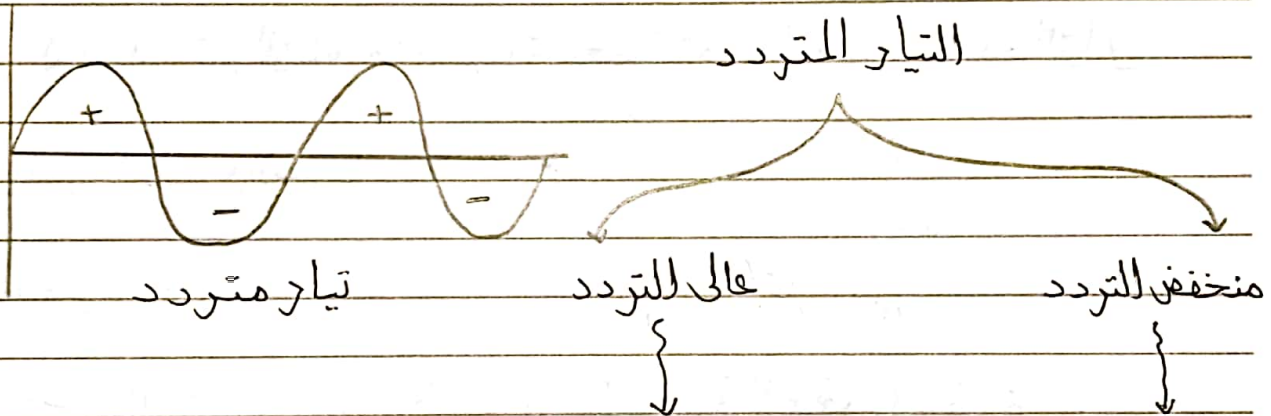 التيار المتردد
+ +
- -
منخفض التردد
عالى التردد
تيار متردد